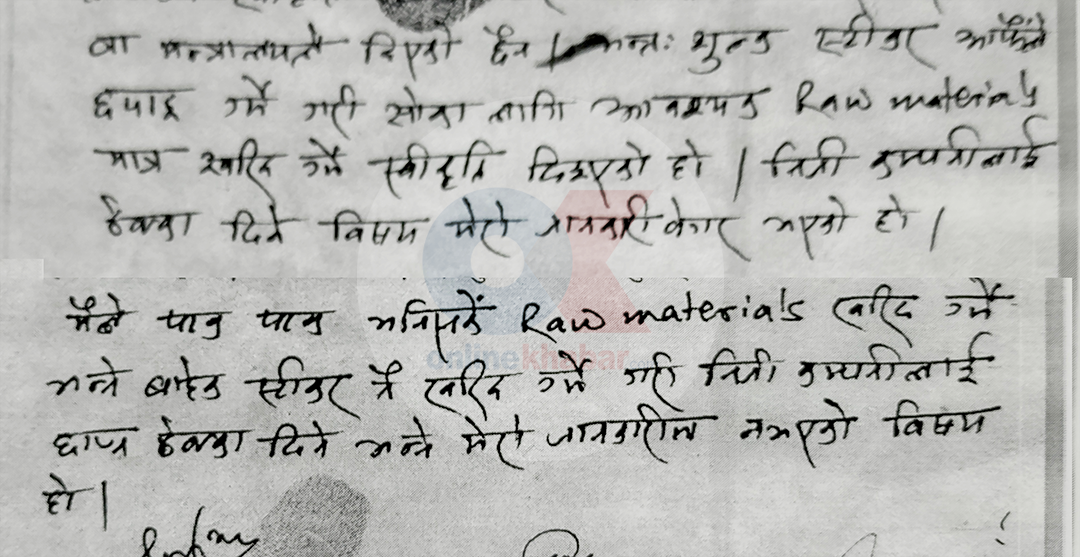 वा मन्त्रालयले दिएको हैन । अन्तः शुल्क स्टीकर आफैले
छपाइ गर्ने गरी सोका लागि आवश्यक Raw materials
मात्र खरिद गर्ने स्वीकृति दिइएको हो । निजी कम्पनीलाई
ठेक्का दिने विषय मेरो जानकारी वेगर भएको हो ।
मैले पानु पानु भनिसकें Raw materials खरिद गर्ने
भन्ने बाहेक स्टीकर नै खरिद गर्ने गरी निजी कम्पनीलाई
छाप्न ठेक्का दिने भन्ने मेरो जानकारीमा नभएको विषय
हो ।
onlinekhabar